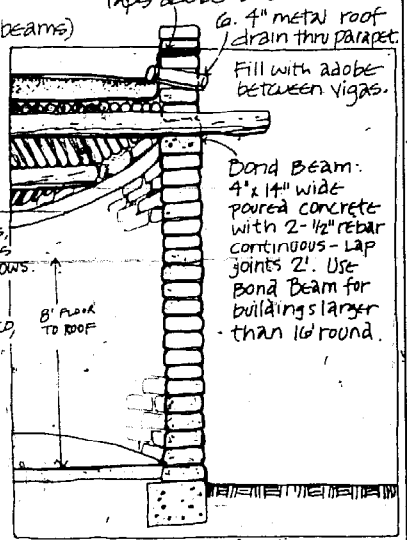 beams)
6. 4" metal roof
drain thru parapet.
Fill with adobe
between vigas.
Bond Beam:
4"x 14" wide
poured concrete
with 2-1/2" rebar
continuous - Lap
joints 2'. Use
Bond Beam for
buildings larger
than 16' round.
ows.
8' FLOOR
TO ROOF